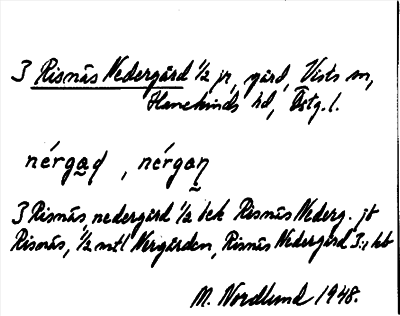 3 Risnäs Nedergård 1/2 jr, gård, Vists sn,
Hanekinds hd, Östg. l.
nérgad , nérgan
3 Risnäs, nedergård 1/2 bek Risnäs Nederg. jb
Risnäs, 1/2 mtl Nergården, Risnäs Nedergård 3:1 kb
M. Nordlund 1948.